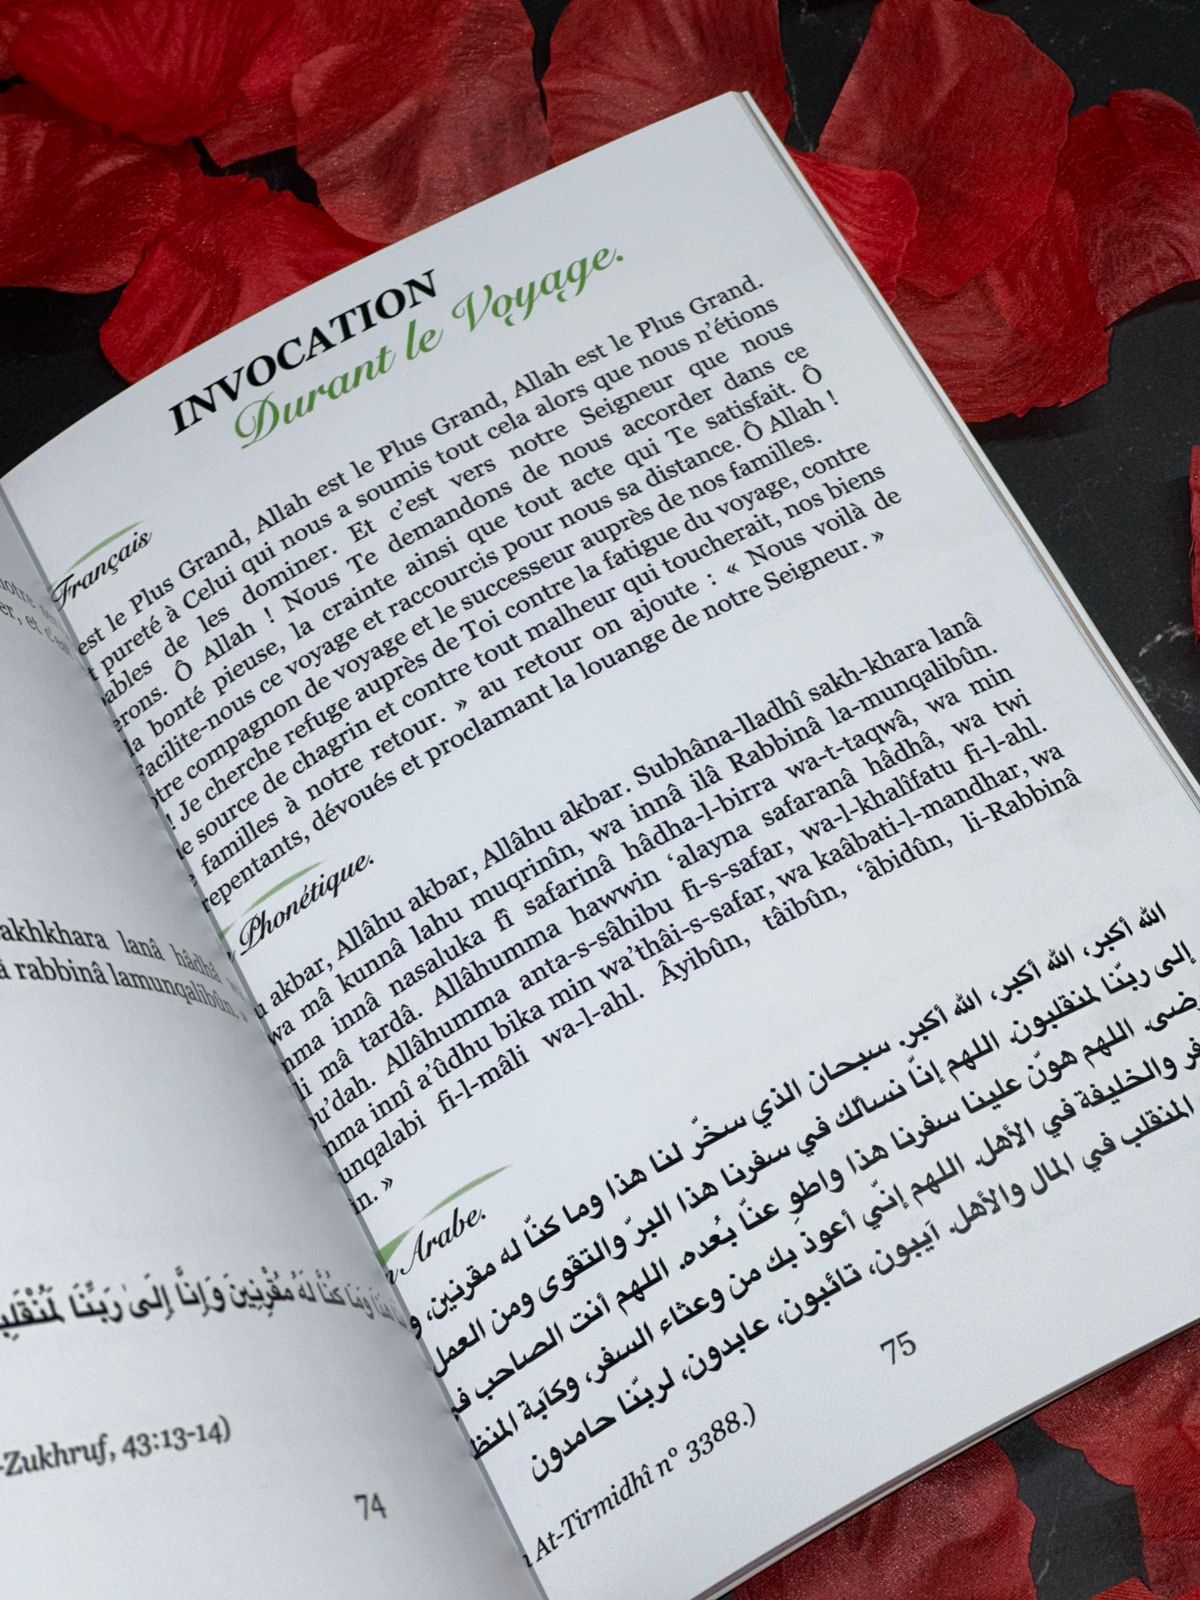 akhkhara lanâ hâdhâ
rabbinâ lamunqalibûn. »
وَمَا كُنَّا لَهُ مُقْرِنِينَ وَإِنَّا إِلَىٰ رَبِّنَا
-Zukhruf, 43:13-14)
74
INVOCATION
Durant le Voyage.
Français
est le Plus Grand, Allah est le Plus Grand, Allah est le Plus Grand.
pureté à Celui qui nous a soumis tout cela alors que nous n’étions
ables de les dominer. Et c’est vers notre Seigneur que nous
erons. Ô Allah ! Nous Te demandons de nous accorder dans ce
la bonté pieuse, la crainte ainsi que tout acte qui Te satisfait. Ô
Facilite-nous ce voyage et raccourcis pour nous sa distance. Ô Allah !
otre compagnon de voyage et le successeur auprès de nos familles.
! Je cherche refuge auprès de Toi contre la fatigue du voyage, contre
source de chagrin et contre tout malheur qui toucherait, nos biens
familles à notre retour. » au retour on ajoute : « Nous voilà de
repentants, dévoués et proclamant la louange de notre Seigneur. »
Phonétique.
u akbar, Allâhu akbar, Allâhu akbar. Subhâna-lladhî sakh-khara lanâ
wa mâ kunnâ lahu muqrinîn, wa innâ ilâ Rabbinâ la-munqalibûn.
mma innâ nasaluka fî safarinâ hâdha-l-birra wa-t-taqwâ, wa min
li mâ tardâ. Allâhumma hawwin ‘alayna safaranâ hâdhâ, wa twi
bu’dah. Allâhumma anta-s-sâhibu fi-s-safar, wa-l-khalîfatu fi-l-ahl.
mma innî a’ûdhu bika min wa’thâi-s-safar, wa kaâbati-l-mandhar, wa
unqalabi fi-l-mâli wa-l-ahl. Âyibûn, tâibûn, ‘âbidûn, li-Rabbinâ
in. »
Arabe.
الله أكبر، الله أكبر، الله أكبر. سبحان الذي سخّر لنا هذا وما كنّا له مقرنين، و
إلى ربّنا لمنقلبون. اللهم إنّا نسألك في سفرنا هذا البرّ والتقوى ومن العمل
اللهم هوّن علينا سفرنا هذا واطوِ عنّا بُعده. اللهم أنت الصاحب ف
والخليفة في الأهل. اللهم إنّي أعوذ بك من وعثاء السفر، وكآبة المنظ
المنقلب في المال والأهل. آيبون، تائبون، عابدون، لربّنا حامدون
At-Tirmidhî n° 3388.)
75